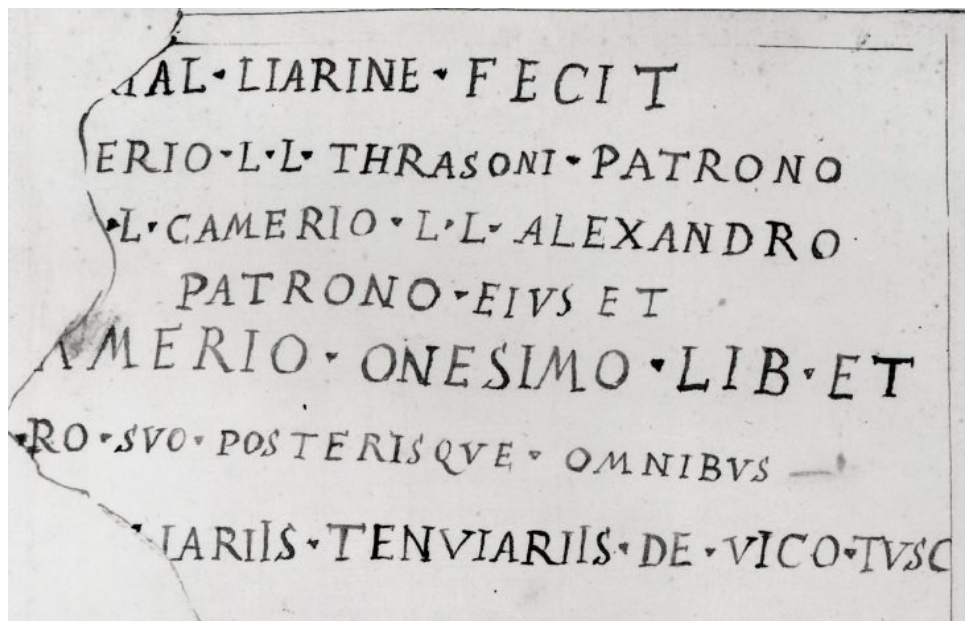 AL · LIARINE · FECIT
ERIO · L · L · THRASONI · PATRONO
· L · CAMERIO · L · L · ALEXANDRO
PATRONO · EIVS ET
AMERIO · ONESIMO · LIB · ET
· RO · SVO · POSTERISQVE · OMNIBVS
IARIIS · TENVIARIIS · DE · VICO · TVSC